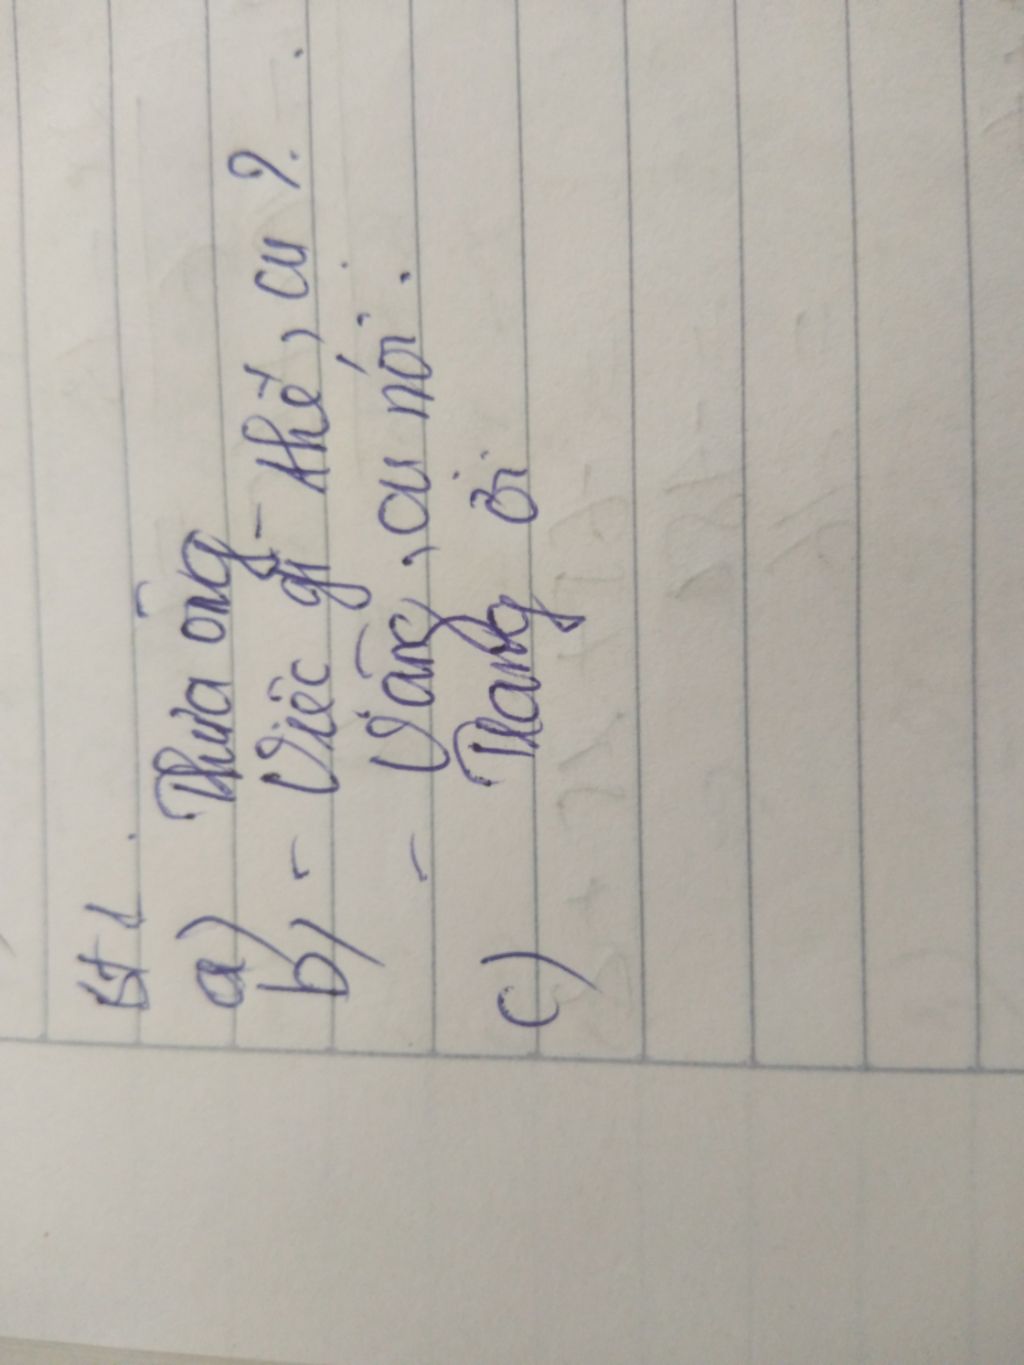 Bt 1.
a) Thưa ông
b) - Việc gì thế, cu ?
- Vâng, cu nói.
c) Thang ơi